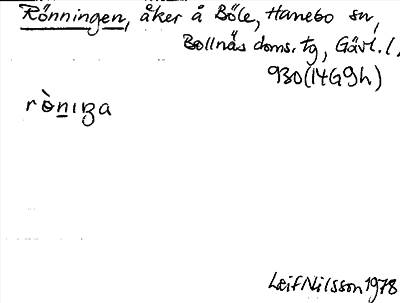 Rönningen, åker å Böle, Hanebo sn,
Bollnäs doms. tg, Gävl. l.
930(14G9h)
rö̀nɪŋa
Leif Nilsson 1978